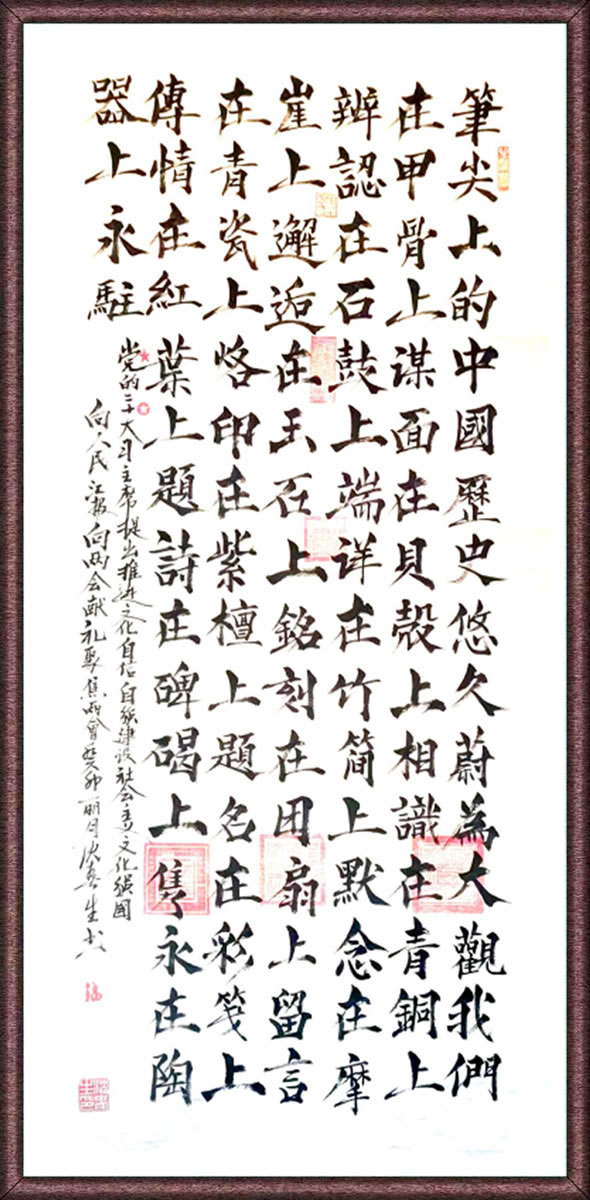 筆尖上的中國歷史悠久蔚為大觀我們
在甲骨上謀面在貝殼上相識在青銅上
辨認在石鼓上端详在竹简上默念在摩
崖上邂逅在玉石上銘刻在团扇上留言
在青瓷上烙印在紫檀上題名在彩笺上
傳情在紅葉上題詩在碑碣上隽永在陶
器上永駐
党的二十大习主席提出推进文化自信自强建设社会主义文化强国
向人民汇报向两会献礼聚焦两會癸卯丽月生书